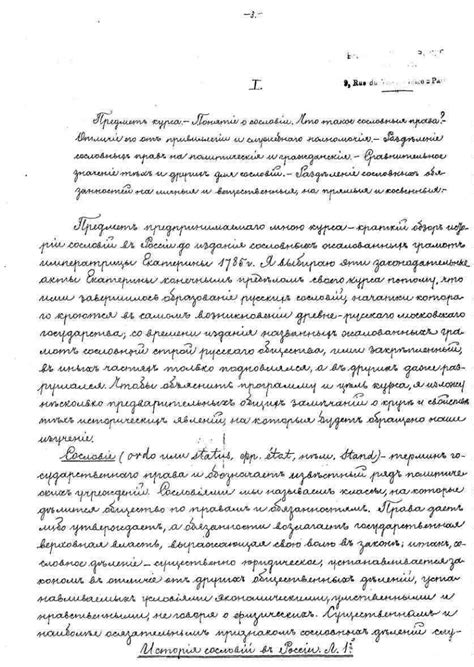 -3-
9, Rus du
I.
Предметъ курса.- Понятіе о сословіи. Что такое сословныя права?-
Отличіе ихъ отъ привилегіи и служебнаго полномочія.- Раздѣленіе
сословныхъ правъ на политическія и гражданскія.- Сравнительное
значеніе тѣхъ и другихъ для сословій.- Раздѣленіе сословныхъ обя-
занностей на личныя и вещественныя, на прямыя и косвенныя.-
Предметъ предпринимаемаго мною курса - краткій обзоръ исто-
ріи сословій въ Россіи до изданія сословныхъ жалованныхъ грамотъ
императрицы Екатерины 1785 г. Я выбираю эти законодательные
акты Екатерины конечнымъ предѣломъ своего курса потому, что
ими завершилось образованіе русскихъ сословій, начатки котора-
го кроются въ самомъ возникновеніи древне-русскаго московскаго
государства; со времени изданія названныхъ жалованныхъ гра-
мотъ сословный строй русскаго общества, ими закрѣпленный,
въ иныхъ частяхъ только подновлялся, а въ другихъ даже раз-
рушался. Чтобы объяснить программу и цѣль курса, я изложу
нѣсколько предварительныхъ общихъ замѣчаній о кругѣ и свойствѣ
тѣхъ историческихъ явленій, на которыя будетъ обращено наше
изученіе.
Сословіе (ordo или status, фр. état, нѣм. Stand) - терминъ го-
сударственнаго права и обозначаетъ извѣстный рядъ политиче-
скихъ учрежденій. Сословіями мы называемъ классы, на которые
дѣлится общество по правамъ и обязанностямъ. Права даетъ
либо утверждаетъ, а обязанности возлагаетъ государственная
верховная власть, выражающая свою волю въ законѣ; итакъ, со-
словное дѣленіе - существенно юридическое, устанавливается за-
кономъ въ отличіе отъ другихъ общественныхъ дѣленій, уста-
навливаемыхъ условіями экономическими, умственными и
нравственными, не говоря о физическихъ. Существеннымъ и
наиболѣе осязательнымъ признакомъ сословныхъ дѣленій слу-
Исторія сословій въ Россіи. Л. 1й